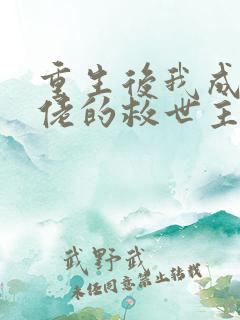 重生後我成
佬的救世主
武野武
未经同意禁止转载